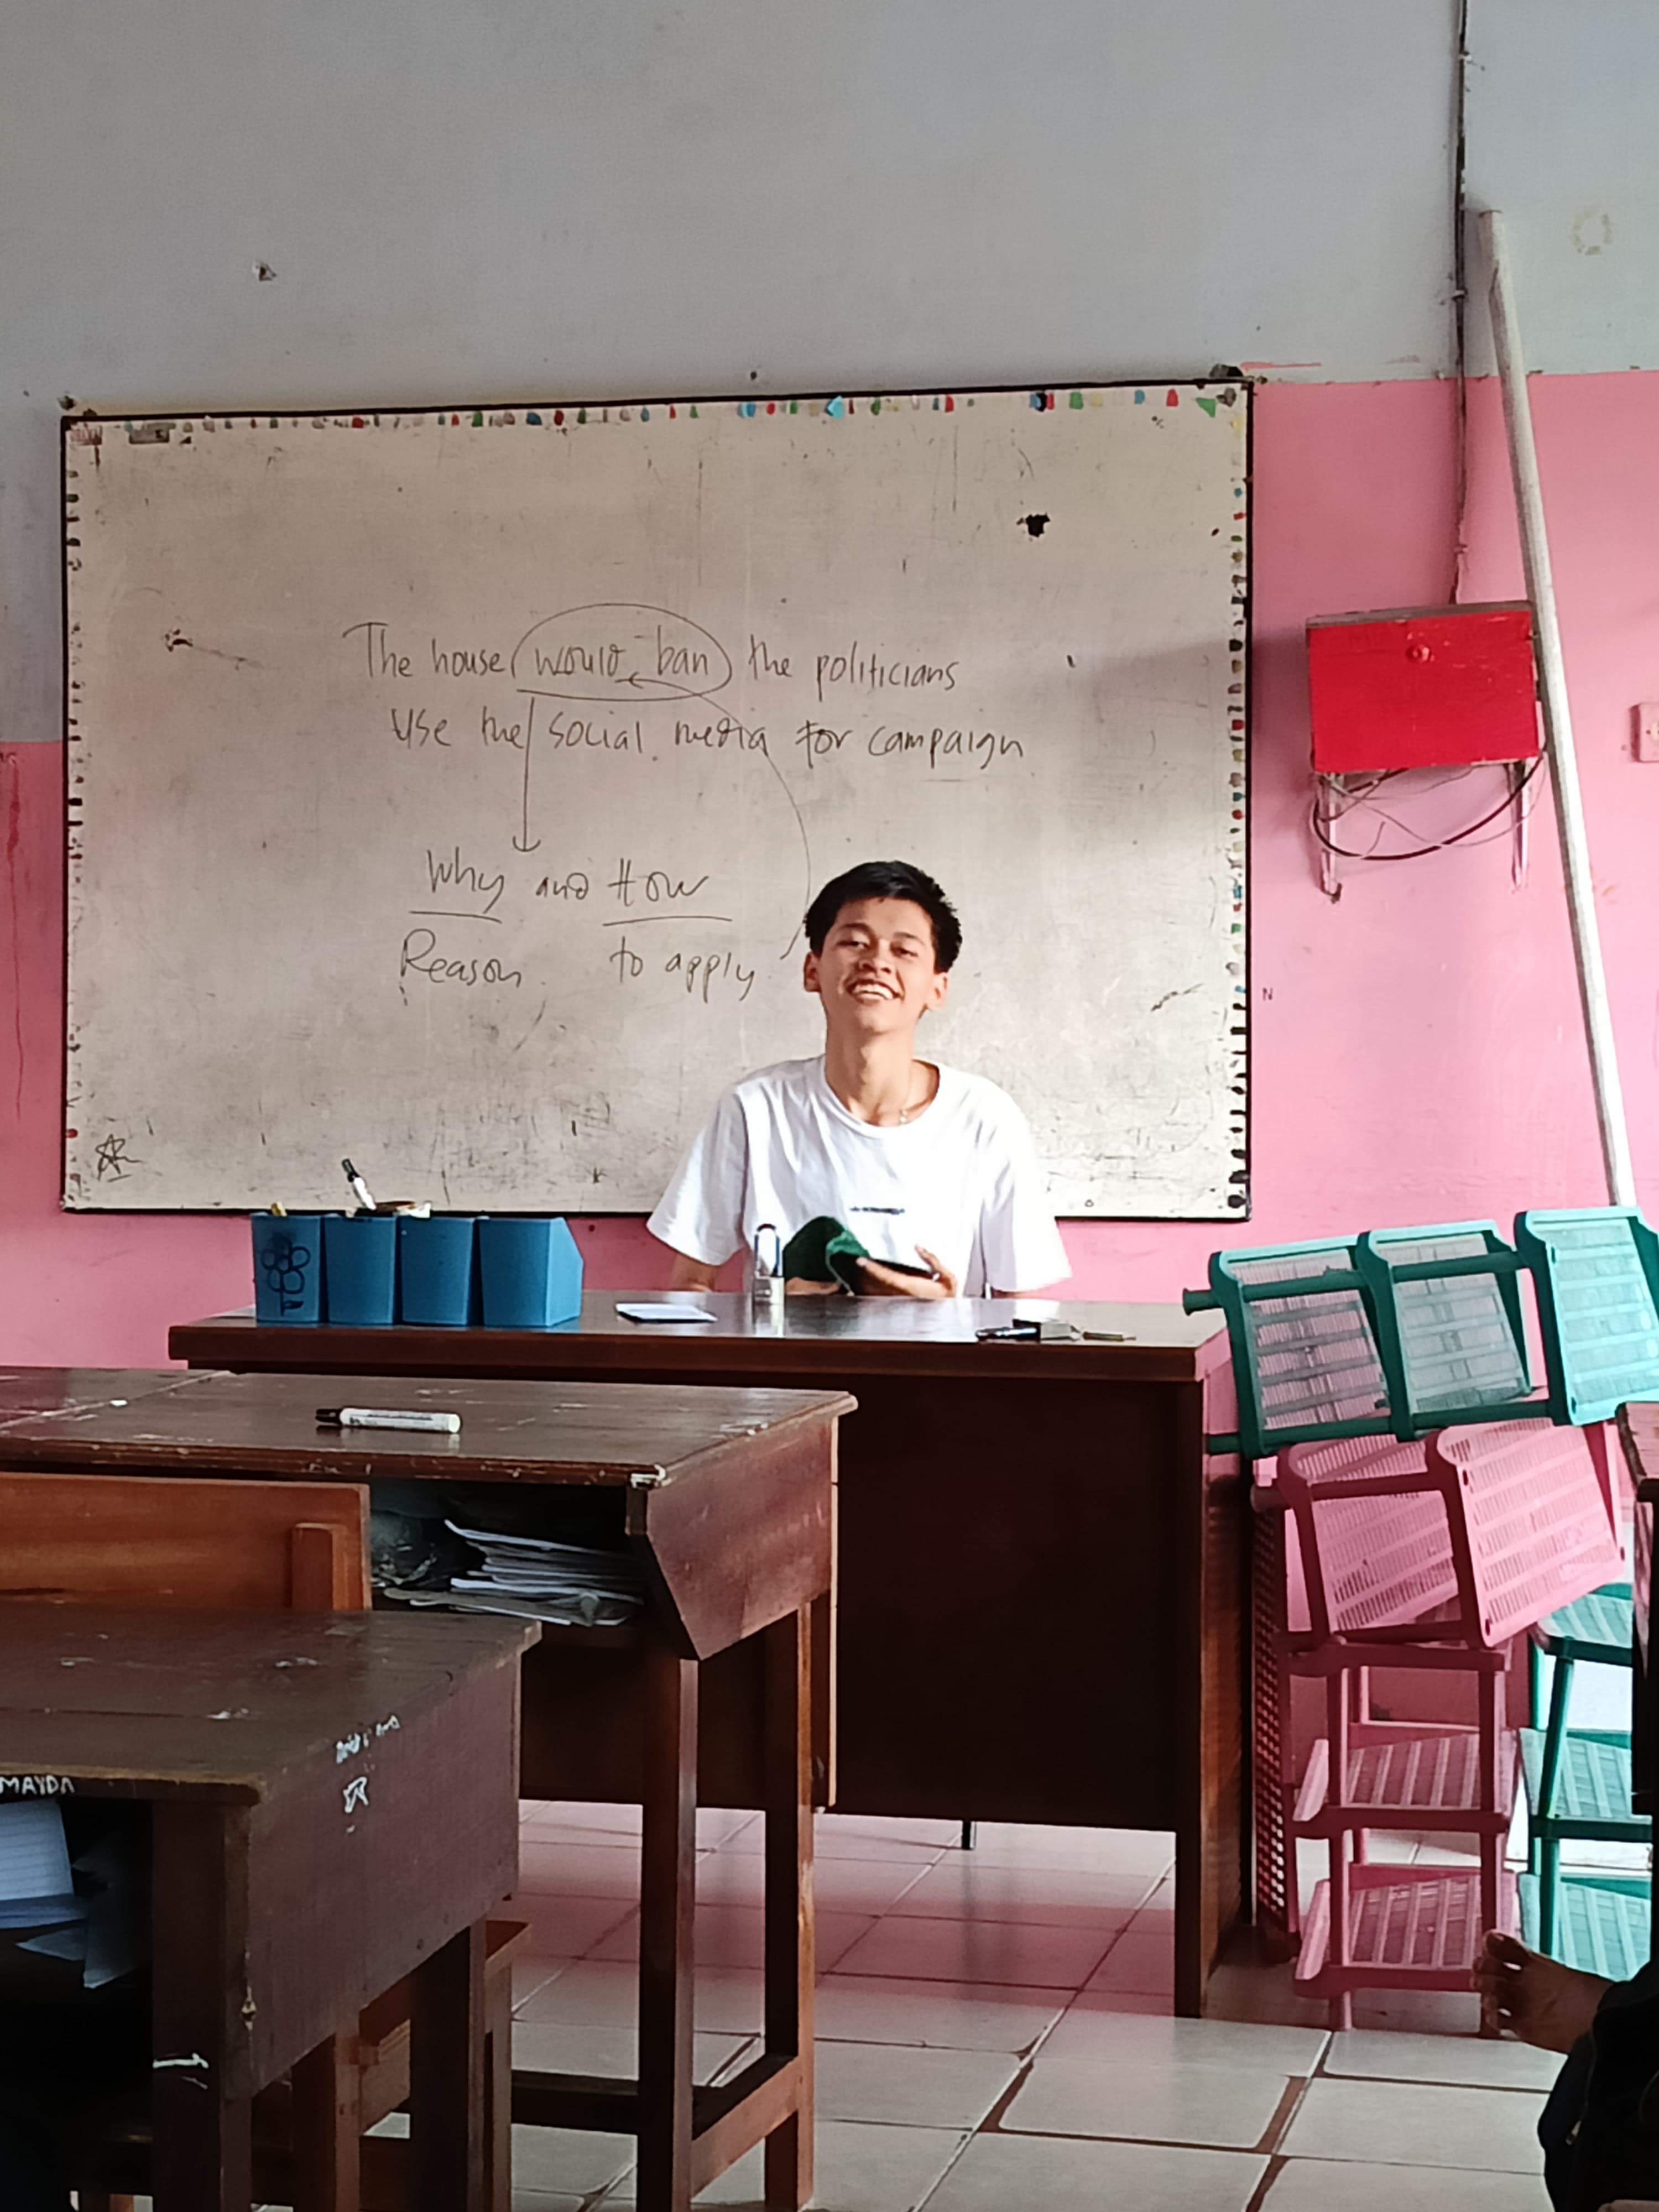 The house would ban the politicians
use the social media for campaign
Why and How
Reason to apply
N
MAYDA